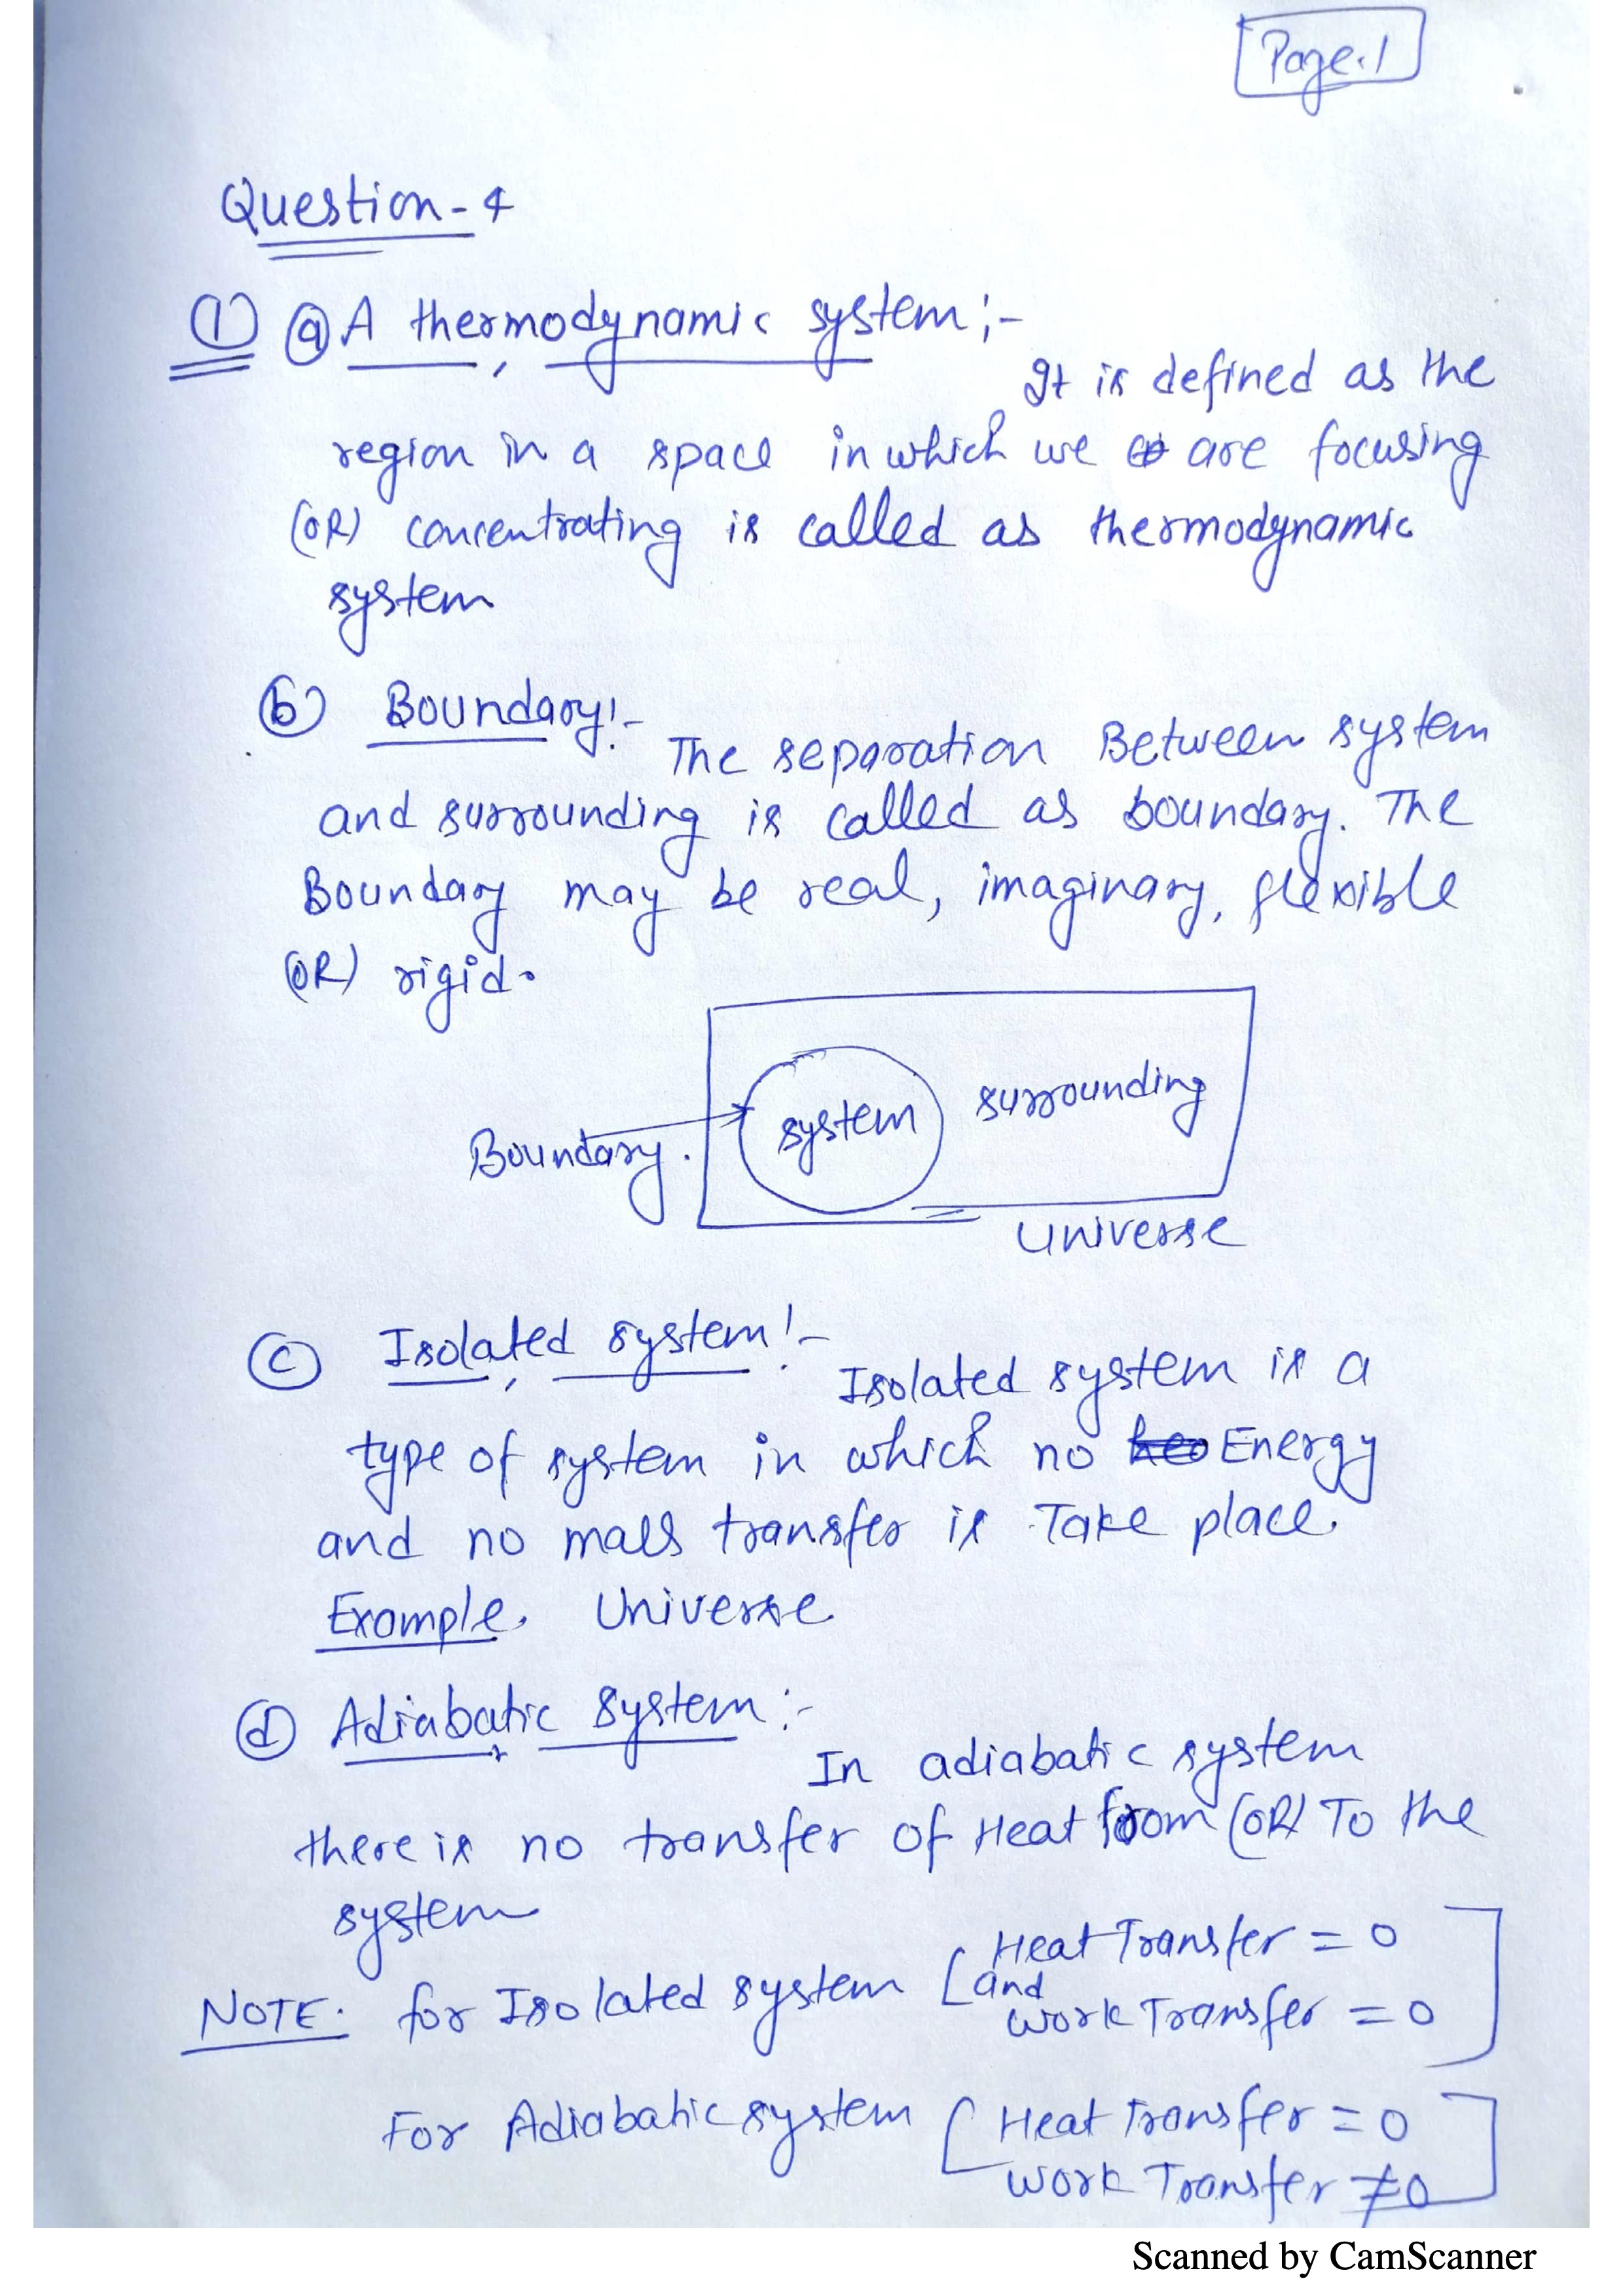 Page.1
Question-4
① ⓐ A thermodynamic system:-
It is defined as the
region in a space in which we are focusing
(OR) concentrating is called as thermodynamic
system
ⓑ Boundary:-
The separation Between system
and surrounding is called as boundary. The
Boundary may be real, imaginary, flexible
(OR) rigid.
system surrounding
Boundary.
Universe
ⓒ Isolated system:-
Isolated system is a
type of system in which no Energy
and no mass transfer is Take place.
Example. Universe
ⓓ Adiabatic system:-
In adiabatic system
there is no transfer of Heat from (OR) To the
system
NOTE: for Isolated system [Heat Transfer = 0
and
work Transfer = 0]
For Adiabatic system [Heat Transfer = 0
work Transfer ≠ 0]
Scanned by CamScanner